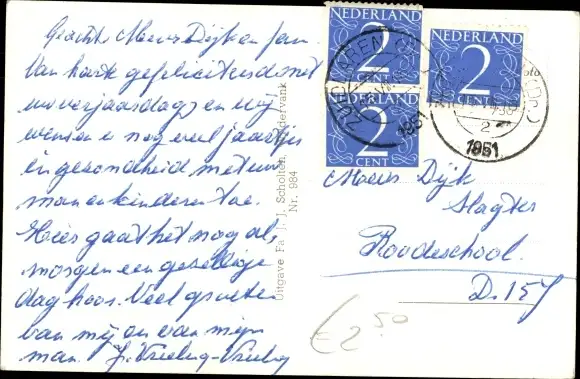 Geachte Mevr Dijk en fam.
Van harte gefeliciteerd met
uw verjaardag, en wij
wensen u nog veel jaartjes
in gezondheid met uw
man en kinderen toe.
Hier gaat het nog als
morgen een gezellige
dag hoor. Veel groeten
van mij en van mijn
man.
Uitgave Fa J.J. Scholtens,
Nr. 984
NEDERLAND
2
CENT
NEDERLAND
2
CENT
2
CENT
ZUIDLAREN
1951
1951
2
Mevr Dijk
Slagter
Roodeschool.
D. 157
€2.50